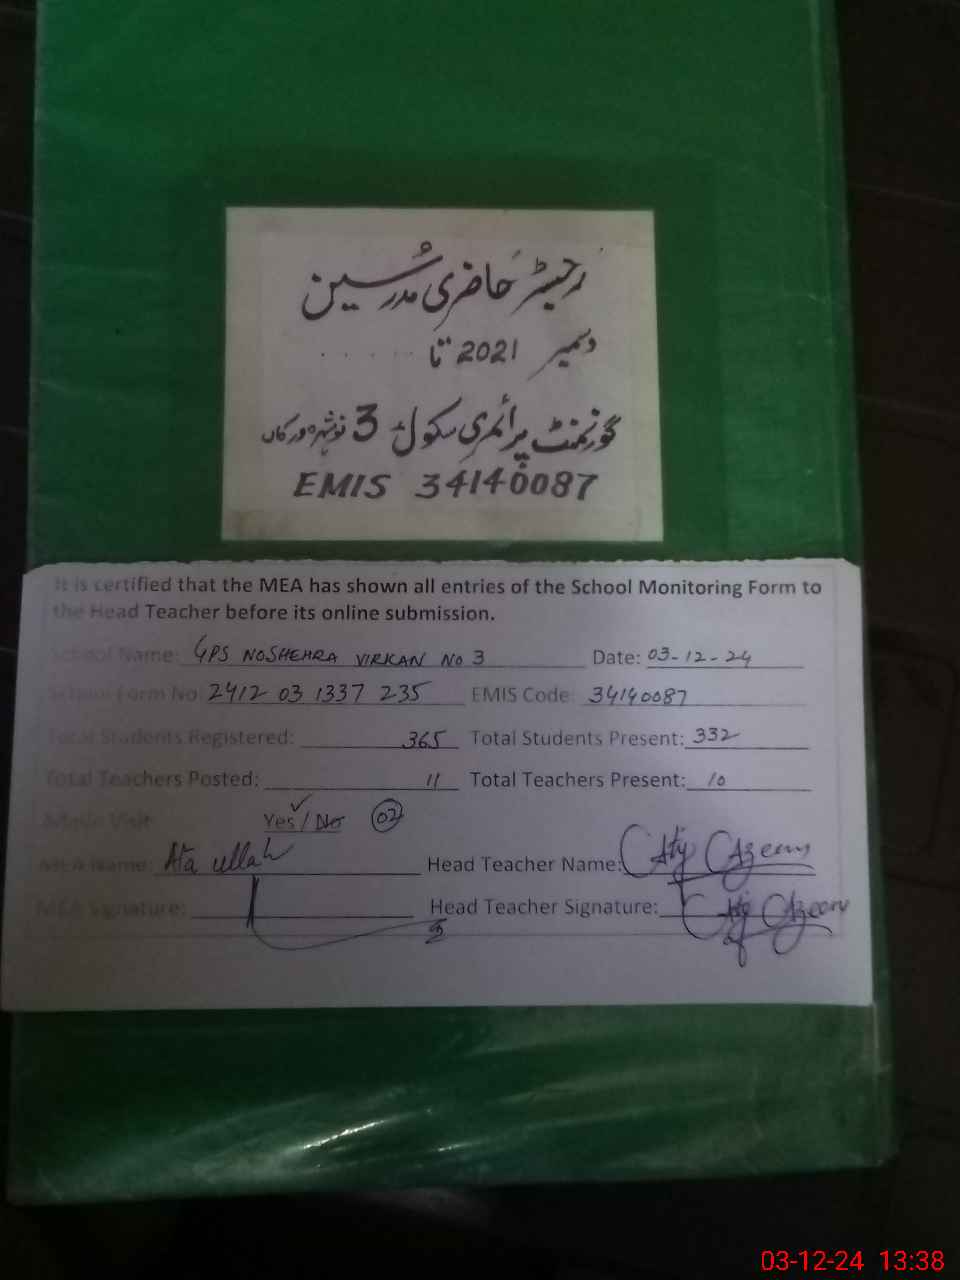 رجسٹر حاضری مدرسین
دسمبر 2021 تا ......
گورنمنٹ پرائمری سکول 3 نوشہرہ ورکاں
EMIS 34140087
It is certified that the MEA has shown all entries of the School Monitoring Form to
the Head Teacher before its online submission.
School Name: GPS NOSHEHRA VIRKAN NO 3 Date: 03-12-24
School Form No: 2412 03 1337 235 EMIS Code: 34140087
Total Students Registered: 365 Total Students Present: 332
Total Teachers Posted: 11 Total Teachers Present: 10
Admin Visit Yes / No 02
MEA Name: Ata ullah Head Teacher Name: Azeem
MEA Signature: Head Teacher Signature: Azeem
03-12-24 13:38